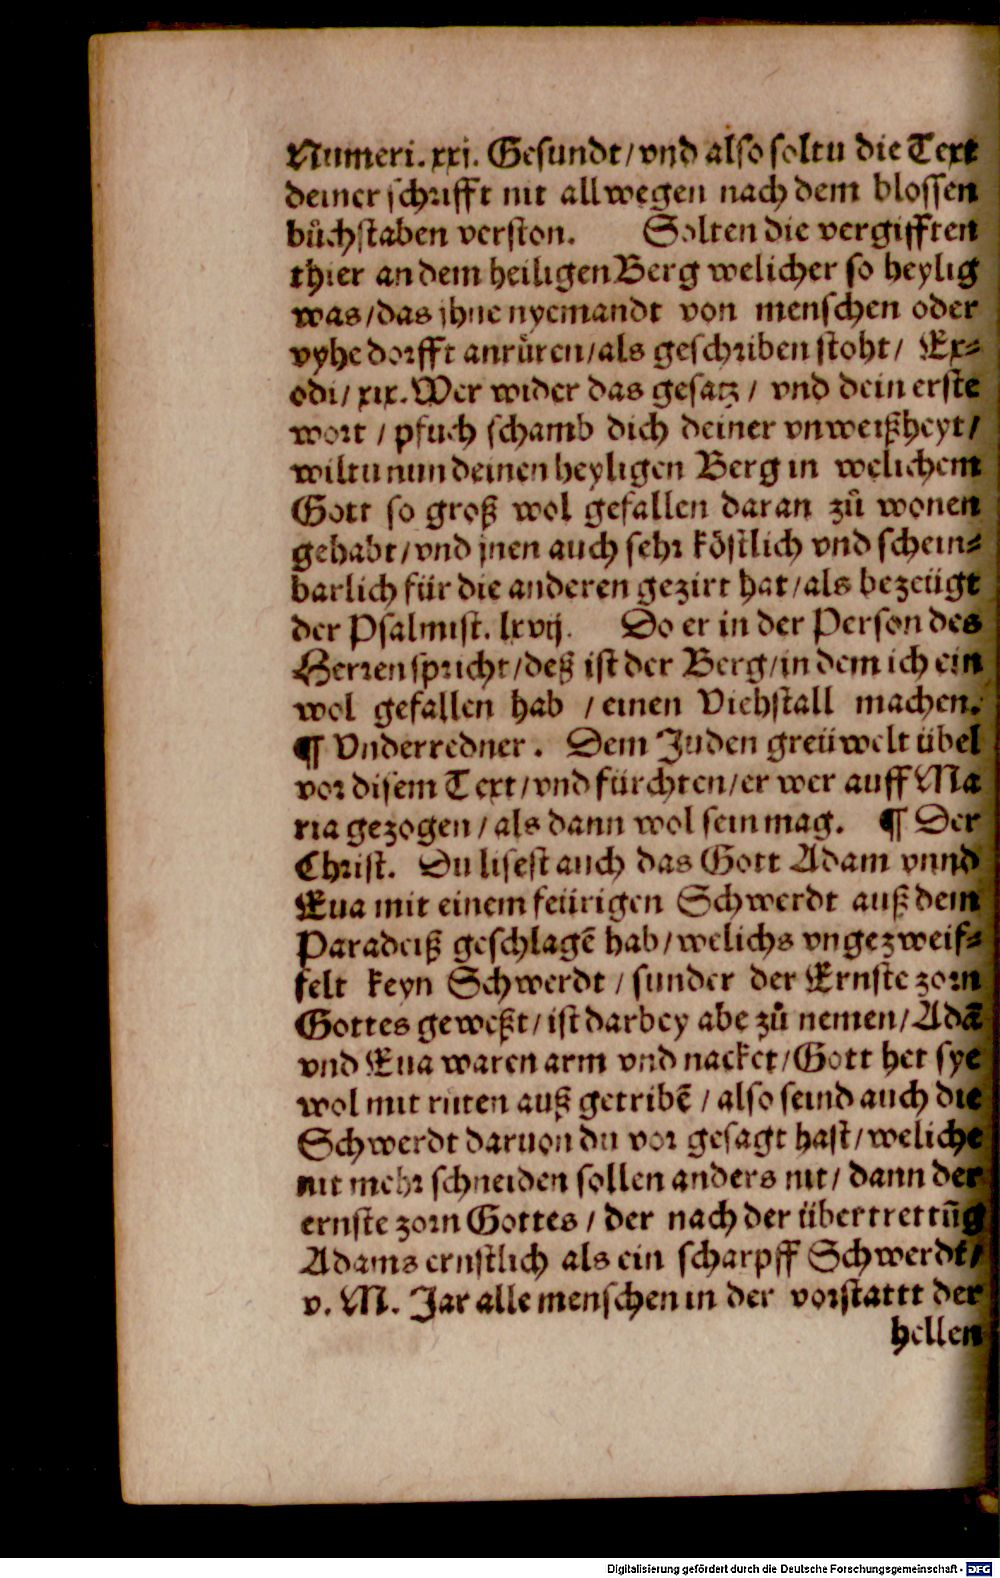 Numeri. xxj. Gesundt / vnd also soltu die Text
deiner schrifft nit allwegen nach dem blossen
bůchstaben verston. Solten die vergifften
thier an dem heiligen Berg welicher so heylig
was / das jhne nyemandt von menschen oder
vyhe dorfft anrůren / als geschriben stoht / Ex⸗
odi / xix. Wer wider das gesatz / vnd dein erste
wort / pfuch schamb dich deiner vnweißheyt /
wiltu nun deinen heyligen Berg in welichem
Gott so groß wol gefallen daran zů wonen
gehabt / vnd jnen auch sehr köstlich vnd schein⸗
barlich für die anderen gezirt hat / als bezeügt
der Psalmist. lxvij. Do er in der Person des
Herren spricht / deß ist der Berg / in dem ich ein
wol gefallen hab / einen Viehstall machen.
¶ Vnderredner. Dem Juden greüwelt übel
vor disem Text / vnd fürchten / er wer auff Ma
ria gezogen / als dann wol sein mag. ¶ Der
Christ. Du lisest auch das Gott Adam vnnd
Eua mit einem feürigen Schwerdt auß dem
Paradeiß geschlagē hab / welichs vngezweif⸗
felt keyn Schwerdt / sunder der Ernste zorn
Gottes geweßt / ist darbey abe zů nemen / Adā
vnd Eua waren arm vnd nacket / Gott het sye
wol mit růten auß getribē / also seind auch die
Schwerdt daruon du vor gesagt hast / weliche
nit mehr schneiden sollen anders nit / dann der
ernste zorn Gottes / der nach der übertrettūg
Adams ernstlich als ein scharpff Schwerdt /
v. M. Jar alle menschen in der vorstattt der
hellen
Digitalisierung gefördert durch die Deutsche Forschungsgemeinschaft - DFG